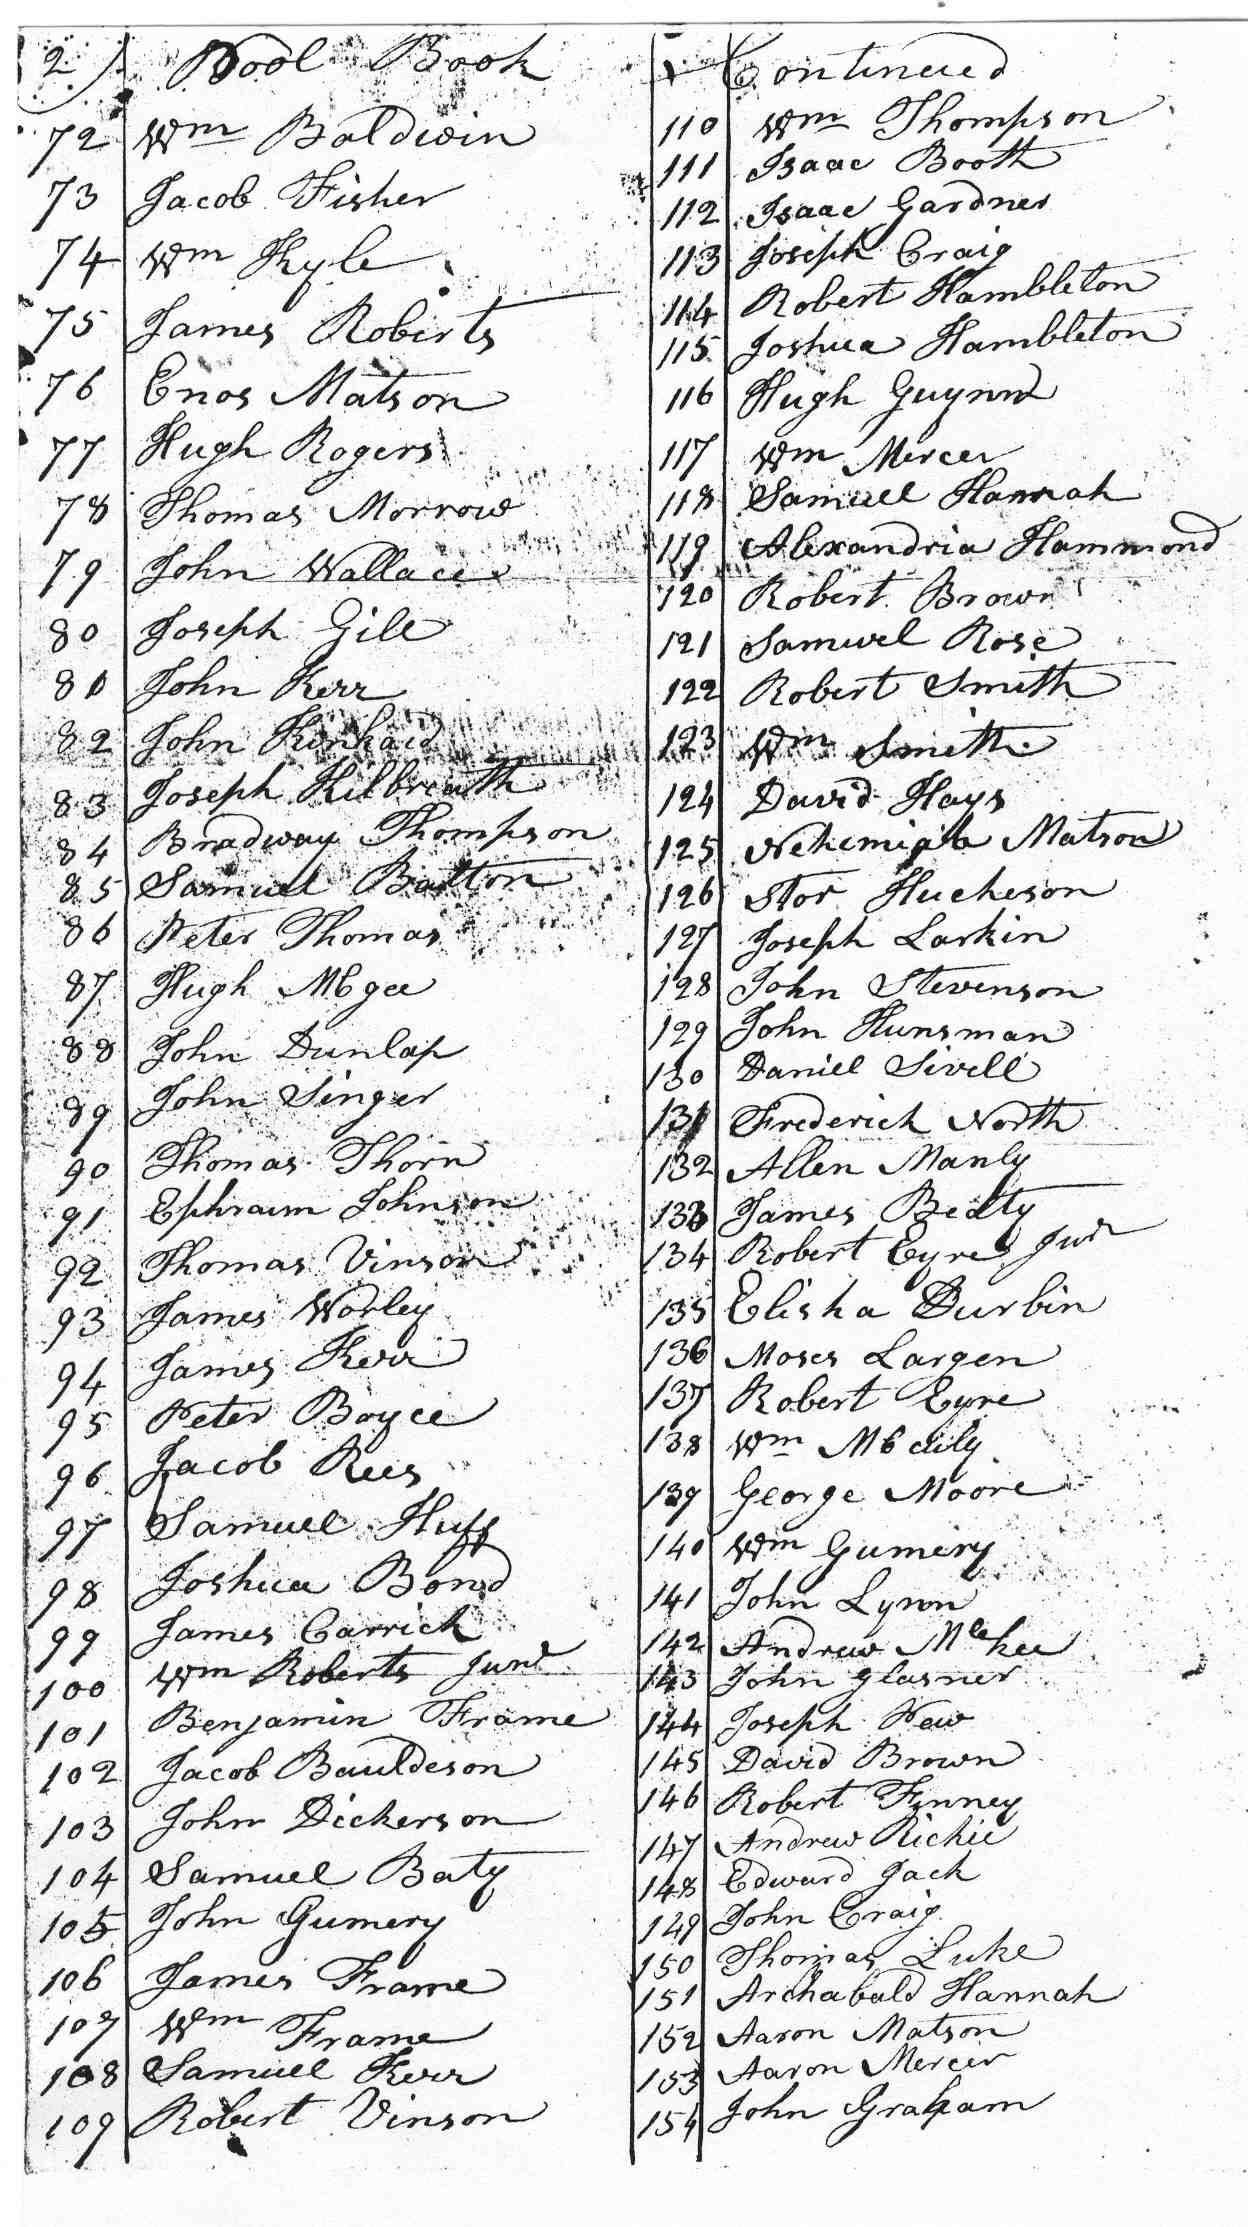 2) Pool Book
72 Wm Baldwin
73 Jacob Fisher
74 Wm Kyle
75 James Roberts
76 Enos Matson
77 Hugh Rogers
78 Thomas Morrow
79 John Wallace
80 Joseph Gill
81 John Kerr
82 John Kinkaid
83 Joseph Kilbreath
84 Bradway Thompson
85 Samuel Batton
86 Peter Thomas
87 Hugh Mcgee
88 John Dunlap
89 John Singer
90 Thomas Thorn
91 Ephraim Johnson
92 Thomas Vinson
93 James Worley
94 James Kerr
95 Peter Boyce
96 Jacob Rees
97 Samuel Huff
98 Joshua Bond
99 James Carrick
100 Wm Roberts Junr
101 Benjamin Frame
102 Jacob Bauldeson
103 John Dickerson
104 Samuel Baty
105 John Gumery
106 James Frame
107 Wm Frame
108 Samuel Kerr
109 Robert Vinson
Continued
110 Wm Thompson
111 Isaac Booth
112 Isaac Gardner
113 Joseph Craig
114 Robert Hambleton
115 Joshua Hambleton
116 Hugh Guynn
117 Wm Mercer
118 Samuel Hannah
119 Alexandria Hammond
120 Robert Brown
121 Samuel Rose
122 Robert Smith
123 Wm Smith
124 David Hays
125 Nehemiah Matson
126 Stor Hucheson
127 Joseph Larkin
128 John Stevenson
129 John Hunsman
130 Daniel Sivell
131 Frederick North
132 Allen Manly
133 James Beaty
134 Robert Eyre Junr
135 Elisha Durbin
136 Moses Largen
137 Robert Eyre
138 Wm
139 George Moore
140 Wm Gumery
141 John Lynn
142 Andrew Mckee
143 John Glasner
144 Joseph Pew
145 David Brown
146 Robert Finney
147 Andrew Richie
148 Edward Jack
149 John Craig
150 Thomas Luke
151 Archabald Hannah
152 Aaron Matson
153 Aaron Mercer
154 John Graham